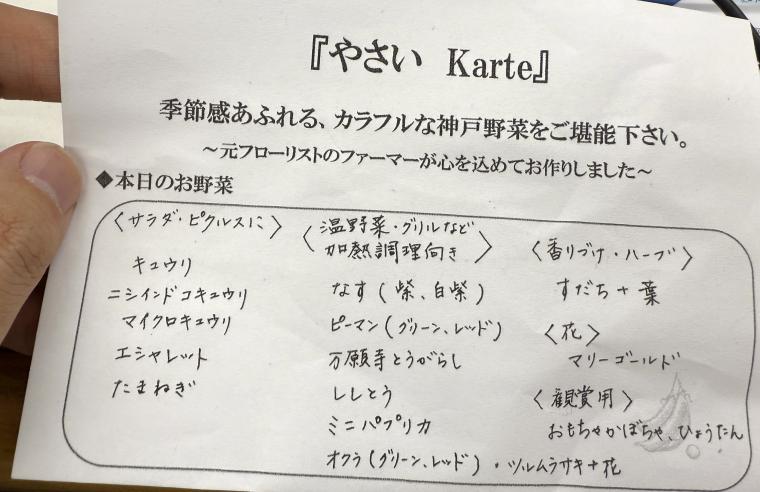 『やさい Karte』
季節感あふれる、カラフルな神戸野菜をご堪能下さい。
～元フローリストのファーマーが心を込めてお作りしました～
◆本日のお野菜
〈サラダ・ピクルスに〉
キュウリ
ニシインドコキュウリ
マイクロキュウリ
エシャレット
たまねぎ
〈温野菜・グリルなど
加熱調理向き〉
なす(紫、白紫)
ピーマン(グリーン、レッド)
万願寺とうがらし
ししとう
ミニパプリカ
オクラ(グリーン、レッド)・ツルムラサキ+花
〈香りづけ・ハーブ〉
すだち+葉
〈花〉
マリーゴールド
〈観賞用〉
おもちゃかぼちゃ、ひょうたん